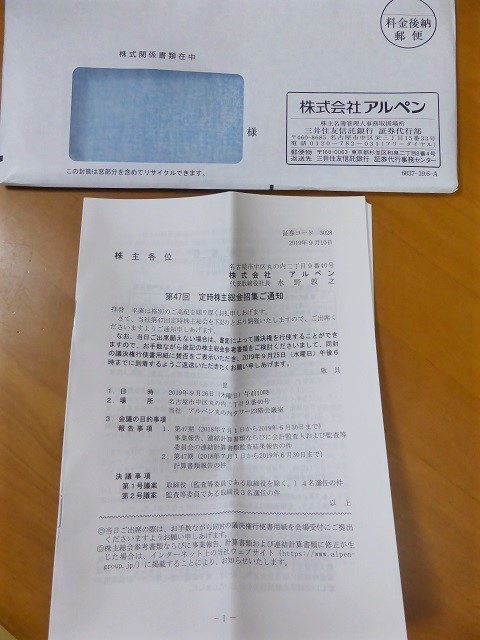 料金後納
郵便
株式関係書類在中
様
株式会社 アルペン
株主名簿管理人事務取扱場所
三井住友信託銀行 証券代行部
〒460-8685 名古屋市中区栄三丁目15番33号
電話 0120-782-031(フリーダイヤル)
郵便物 〒168-0063 東京都杉並区和泉二丁目8番4号
返送先 三井住友信託銀行 証券代行事務センター
この封筒は窓部分を含めてリサイクルできます。
6037-19.6-A
証券コード 3028
2019年9月10日
株主各位
名古屋市中区丸の内二丁目9番40号
株式会社 アルペン
代表取締役社長 水野敦之
第47回 定時株主総会招集ご通知
拝啓 平素は格別のご高配を賜り厚くお礼申しあげます。
さて、当社第47回定時株主総会を下記のとおり開催いたしますので、ご出席く
ださいますようご通知申しあげます。
なお、当日ご出席願えない場合は、書面によって議決権を行使することができ
ますので、お手数ながら後記の株主総会参考書類をご検討くださいまして、同封
の議決権行使書用紙に賛否をご表示いただき、2019年9月25日（水曜日）午後6
時までに到着するようご返送いただきたくお願い申しあげます。
敬具
記
1 日時 2019年9月26日（木曜日）午前10時
2．場所 名古屋市中区丸の内二丁目9番40号
当社 アルペン丸の内タワー23階会議室
3．会議の目的事項
報告事項 1．第47期（2018年7月1日から2019年6月30日まで）
事業報告、連結計算書類ならびに会計監査人および監査等
委員会の連結計算書類監査結果報告の件
2．第47期（2018年7月1日から2019年6月30日まで）
計算書類報告の件
決議事項
第1号議案 取締役（監査等委員である取締役を除く。）4名選任の件
第2号議案 監査等委員である取締役3名選任の件
以上
◎当日ご出席の際は、お手数ながら同封の議決権行使書用紙を会場受付にご提出
くださいますようお願い申しあげます。
◎株主総会参考書類ならびに事業報告、計算書類および連結計算書類に修正が生
じた場合は、インターネット上の当社ウェブサイト（https://www.alpen-
group.jp/）に掲載することにより、お知らせいたします。
- 1 -